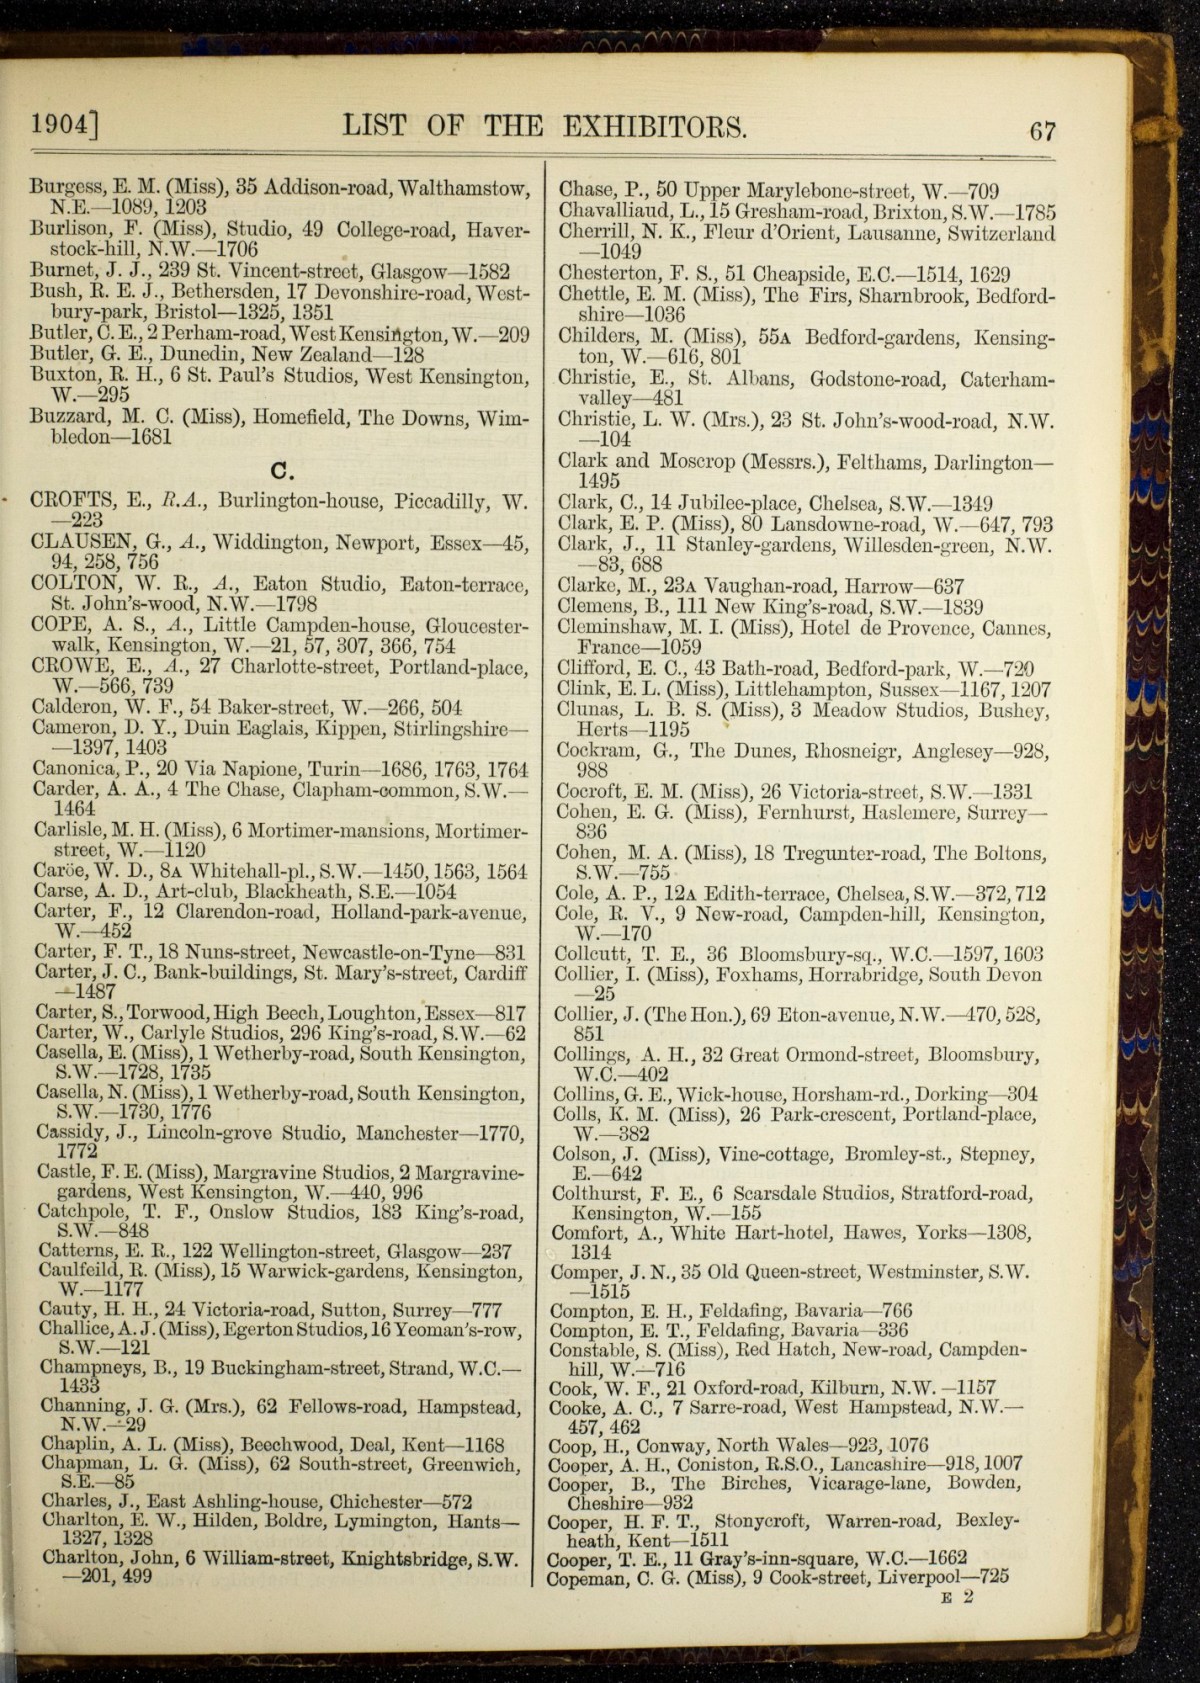 1904]
LIST OF THE EXHIBITORS.
67
Burgess, E. M. (Miss), 35 Addison-road, Walthamstow,
N.E.—1089, 1203
Burlison, F. (Miss), Studio, 49 College-road, Haver-
stock-hill, N.W.—1706
Burnet, J. J., 239 St. Vincent-street, Glasgow—1582
Bush, R. E. J., Bethersden, 17 Devonshire-road, West-
bury-park, Bristol—1325, 1351
Butler, C. E., 2 Perham-road, West Kensington, W.—209
Butler, G. E., Dunedin, New Zealand—128
Buxton, R. H., 6 St. Paul's Studios, West Kensington,
W.—295
Buzzard, M. C. (Miss), Homefield, The Downs, Wim-
bledon—1681
C.
CROFTS, E., R.A., Burlington-house, Piccadilly, W.
—223
CLAUSEN, G., A., Widdington, Newport, Essex—45,
94, 258, 756
COLTON, W. R., A., Eaton Studio, Eaton-terrace,
St. John's-wood, N.W.—1798
COPE, A. S., A., Little Campden-house, Gloucester-
walk, Kensington, W.—21, 57, 307, 366, 754
CROWE, E., A., 27 Charlotte-street, Portland-place,
W.—566, 739
Calderon, W. F., 54 Baker-street, W.—266, 504
Cameron, D. Y., Duin Eaglais, Kippen, Stirlingshire—
—1397, 1403
Canonica, P., 20 Via Napione, Turin—1686, 1763, 1764
Carder, A. A., 4 The Chase, Clapham-common, S.W.—
1464
Carlisle, M. H. (Miss), 6 Mortimer-mansions, Mortimer-
street, W.—1120
Caröe, W. D., 8A Whitehall-pl., S.W.—1450, 1563, 1564
Carse, A. D., Art-club, Blackheath, S.E.—1054
Carter, F., 12 Clarendon-road, Holland-park-avenue,
W.—452
Carter, F. T., 18 Nuns-street, Newcastle-on-Tyne—831
Carter, J. C., Bank-buildings, St. Mary's-street, Cardiff
—1487
Carter, S., Torwood, High Beech, Loughton, Essex—817
Carter, W., Carlyle Studios, 296 King's-road, S.W.—62
Casella, E. (Miss), 1 Wetherby-road, South Kensington,
S.W.—1728, 1735
Casella, N. (Miss), 1 Wetherby-road, South Kensington,
S.W.—1730, 1776
Cassidy, J., Lincoln-grove Studio, Manchester—1770,
1772
Castle, F. E. (Miss), Margravine Studios, 2 Margravine-
gardens, West Kensington, W.—440, 996
Catchpole, T. F., Onslow Studios, 183 King's-road,
S.W.—848
Catterns, E. R., 122 Wellington-street, Glasgow—237
Caulfeild, R. (Miss), 15 Warwick-gardens, Kensington,
W.—1177
Cauty, H. H., 24 Victoria-road, Sutton, Surrey—777
Challice, A. J. (Miss), Egerton Studios, 16 Yeoman's-row,
S.W.—121
Champneys, B., 19 Buckingham-street, Strand, W.C.—
1433
Channing, J. G. (Mrs.), 62 Fellows-road, Hampstead,
N.W.—29
Chaplin, A. L. (Miss), Beechwood, Deal, Kent—1168
Chapman, L. G. (Miss), 62 South-street, Greenwich,
S.E.—85
Charles, J., East Ashling-house, Chichester—572
Charlton, E. W., Hilden, Boldre, Lymington, Hants—
1327, 1328
Charlton, John, 6 William-street, Knightsbridge, S.W.
—201, 499
Chase, P., 50 Upper Marylebone-street, W.—709
Chavalliaud, L., 15 Gresham-road, Brixton, S.W.—1785
Cherrill, N. K., Fleur d'Orient, Lausanne, Switzerland
—1049
Chesterton, F. S., 51 Cheapside, E.C.—1514, 1629
Chettle, E. M. (Miss), The Firs, Sharnbrook, Bedford-
shire—1036
Childers, M. (Miss), 55A Bedford-gardens, Kensing-
ton, W.—616, 801
Christie, E., St. Albans, Godstone-road, Caterham-
valley—481
Christie, L. W. (Mrs.), 23 St. John's-wood-road, N.W.
—104
Clark and Moscrop (Messrs.), Felthams, Darlington—
1495
Clark, C., 14 Jubilee-place, Chelsea, S.W.—1349
Clark, E. P. (Miss), 80 Lansdowne-road, W.—647, 793
Clark, J., 11 Stanley-gardens, Willesden-green, N.W.
—83, 688
Clarke, M., 23A Vaughan-road, Harrow—637
Clemens, B., 111 New King's-road, S.W.—1839
Cleminshaw, M. I. (Miss), Hotel de Provence, Cannes,
France—1059
Clifford, E. C., 43 Bath-road, Bedford-park, W.—720
Clink, E. L. (Miss), Littlehampton, Sussex—1167, 1207
Clunas, L. B. S. (Miss), 3 Meadow Studios, Bushey,
Herts—1195
Cockram, G., The Dunes, Rhosneigr, Anglesey—928,
988
Cocroft, E. M. (Miss), 26 Victoria-street, S.W.—1331
Cohen, E. G. (Miss), Fernhurst, Haslemere, Surrey—
836
Cohen, M. A. (Miss), 18 Tregunter-road, The Boltons,
S.W.—755
Cole, A. P., 12A Edith-terrace, Chelsea, S.W.—372, 712
Cole, R. V., 9 New-road, Campden-hill, Kensington,
W.—170
Collcutt, T. E., 36 Bloomsbury-sq., W.C.—1597, 1603
Collier, I. (Miss), Foxhams, Horrabridge, South Devon
—25
Collier, J. (The Hon.), 69 Eton-avenue, N.W.—470, 528,
851
Collings, A. H., 32 Great Ormond-street, Bloomsbury,
W.C.—402
Collins, G. E., Wick-house, Horsham-rd., Dorking—304
Colls, K. M. (Miss), 26 Park-crescent, Portland-place,
W.—382
Colson, J. (Miss), Vine-cottage, Bromley-st., Stepney,
E.—642
Colthurst, F. E., 6 Scarsdale Studios, Stratford-road,
Kensington, W.—155
Comfort, A., White Hart-hotel, Hawes, Yorks—1308,
1314
Comper, J. N., 35 Old Queen-street, Westminster, S.W.
—1515
Compton, E. H., Feldafing, Bavaria—766
Compton, E. T., Feldafing, Bavaria—336
Constable, S. (Miss), Red Hatch, New-road, Campden-
hill, W.—716
Cook, W. F., 21 Oxford-road, Kilburn, N.W. —1157
Cooke, A. C., 7 Sarre-road, West Hampstead, N.W.—
457, 462
Coop, H., Conway, North Wales—923, 1076
Cooper, A. H., Coniston, R.S.O., Lancashire—918, 1007
Cooper, B., The Birches, Vicarage-lane, Bowden,
Cheshire—932
Cooper, H. F. T., Stonycroft, Warren-road, Bexley-
heath, Kent—1511
Cooper, T. E., 11 Gray's-inn-square, W.C.—1662
Copeman, C. G. (Miss), 9 Cook-street, Liverpool—725
E 2